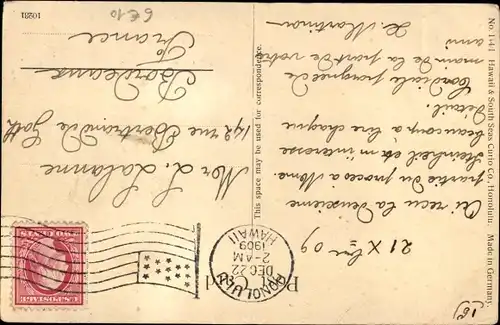 21 Xbre 09
Ai reçu la deuxième
partie du procès a Mme.
Steinheil et m'interesse
beaucoup a lire chaque
détail.
Cordiale poignée de
main de la part de votre
ami
H. Martman
Mor L. Lalanne
142 rue Bertrand de Goth
Bordeaux
France
This space may be used for correspondence.
No. 1141 Hawaii & South Seas Curio Co., Honolulu. Made in Germany.
HONOLULU
DEC 22
2-AM
1909
HAWAII
U.S. POSTAGE
TWO CENTS
10281
6€10